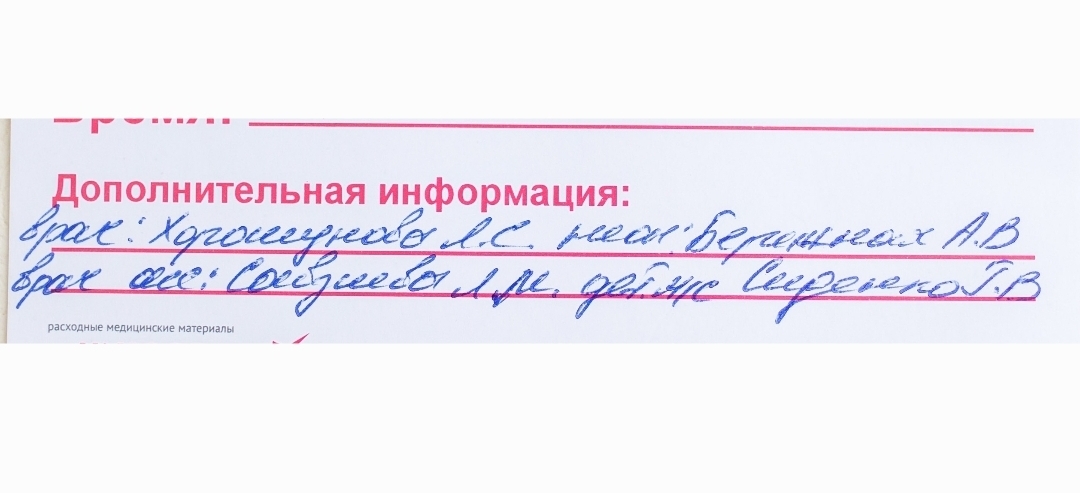 Время:
Дополнительная информация:
врач: Хорошунова Л.С. неон: Бережная А.В
врач Л.М. дет Сиденко Г.В
расходные медицинские материалы